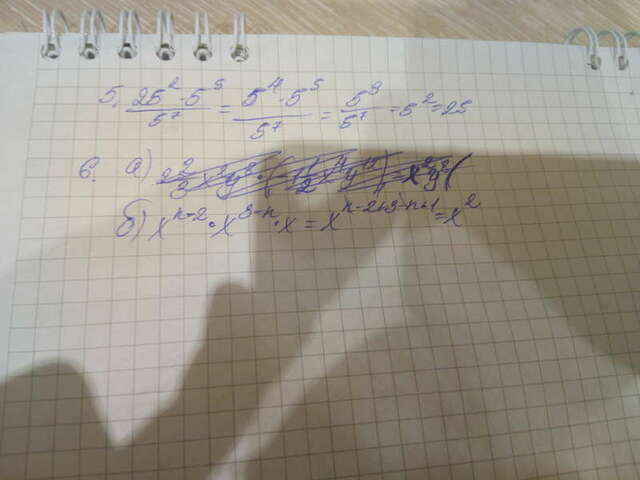 5. 25²·5⁵/5⁷ = 5⁴·5⁵/5⁷ = 5⁹/5⁷ = 5² = 25
6. а)
б) xⁿ⁻²·x³⁻ⁿ·x = xⁿ⁻²⁺³⁻ⁿ⁺¹ = x²